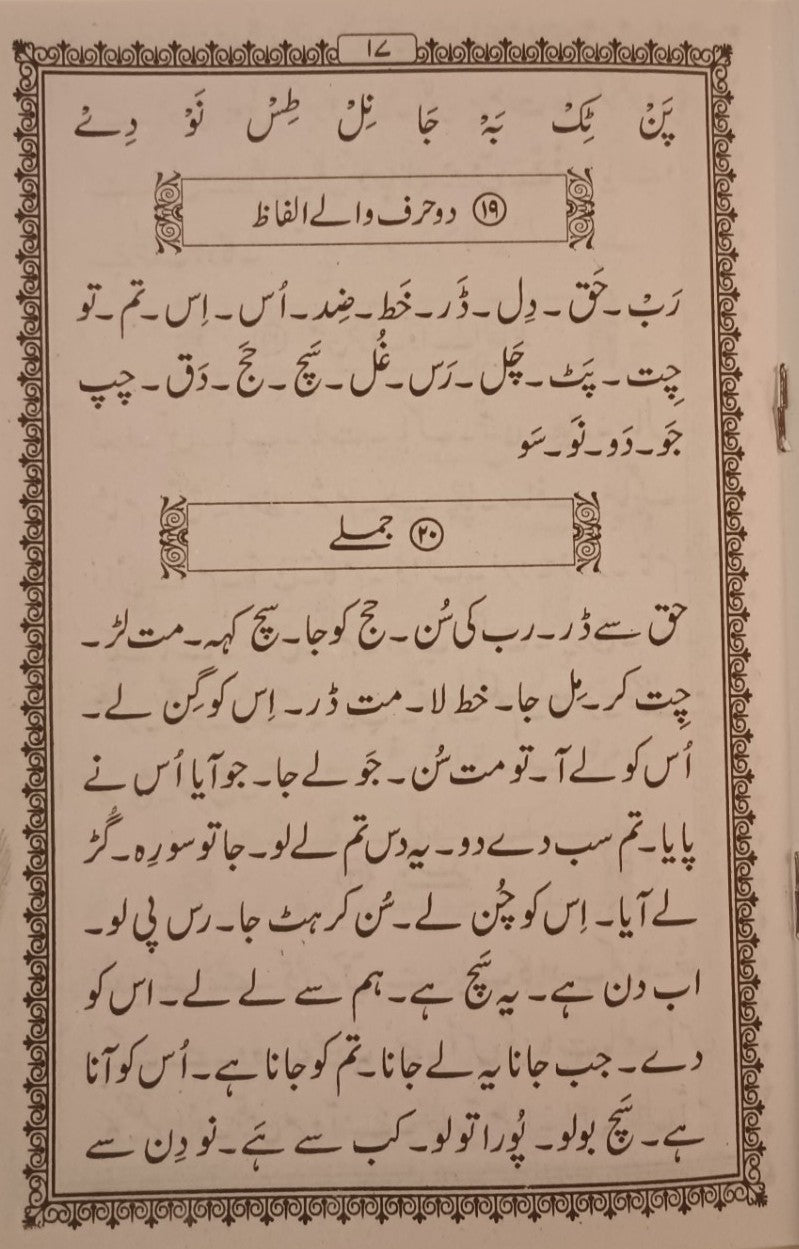 ۱۷
پَنْ ٹِکْ بَہْ جَا نِلْ طِسْ نَوْ دِئے
۱۹ دو حرف والے الفاظ
رَبْ۔حَق۔دِل۔ڈَر۔خَط۔ضِد۔اُس۔اِس۔تم۔تو
چِت۔پَٹ۔چَل۔رَس۔غُل۔سَچ۔حَج۔دَق۔چپ
جَو۔دَو۔نَو۔سَو
۲۰ جملے
حق سے ڈر۔رب کی سُن۔حج کو جا۔سچ کہہ۔مت لڑ۔
چِت کر۔مِل جا۔خط لا۔مت ڈر۔اِس کو گِن لے۔
اُس کو لے آ۔تو مت سُن۔جَو لے جا۔جو آیا اُس نے
پایا۔تم سب دے دو۔یہ دس تم لے لو۔جا تو سو رِہ۔گُڑ
لے آیا۔اِس کو چُن لے۔سُن کر ہٹ جا۔رس پی لو۔
اب دن ہے۔یہ سَچ ہے۔ہم سے لے لے۔اس کو
دے۔جب جانا یہ لے جانا۔تم کو جانا ہے۔اُس کو آنا
ہے۔سَچ بولو۔پُورا تو لو۔کب سے ہَے۔نو دِن سے